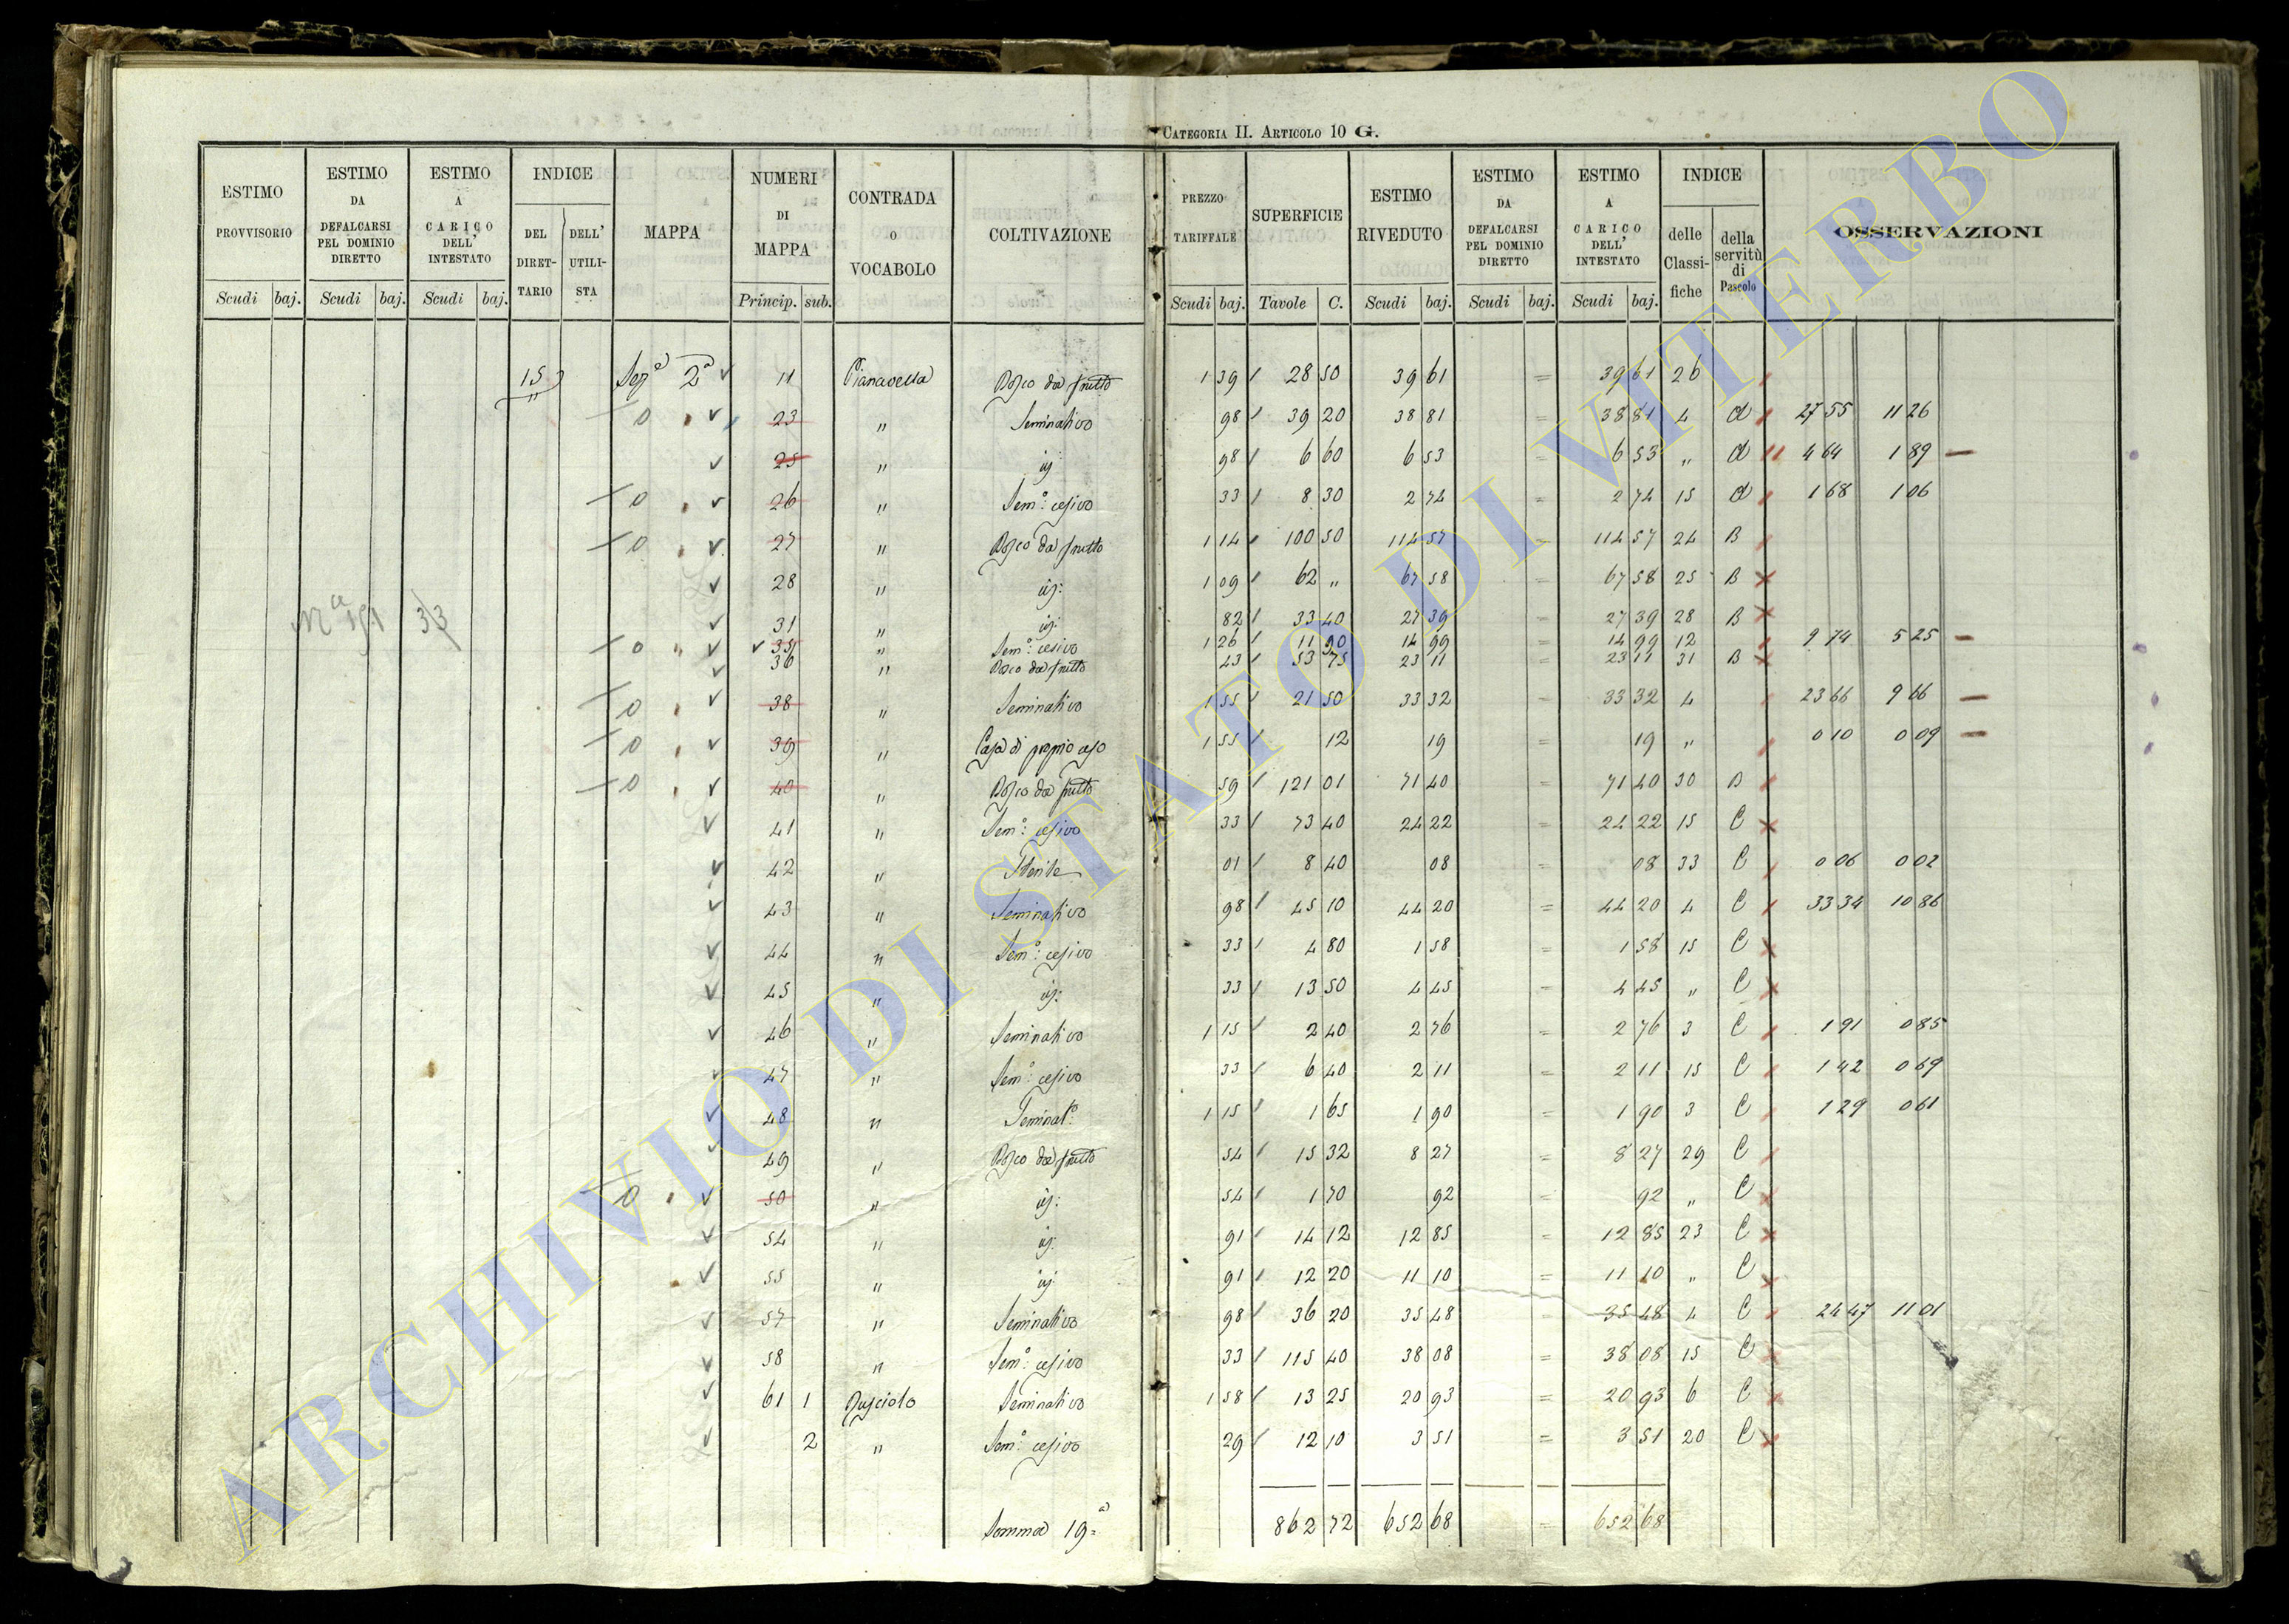 CATEGORIA II. ARTICOLO 10 G.
ESTIMO PROVVISORIO Scudi baj.
ESTIMO DA DEFALCARSI PEL DOMINIO DIRETTO Scudi baj.
ESTIMO A CARICO DELL' INTESTATO Scudi baj.
INDICE DEL DIRETTARIO DELL' UTILISTA
MAPPA
NUMERI DI MAPPA Princip. sub.
CONTRADA O VOCABOLO
COLTIVAZIONE
PREZZO TARIFFALE Scudi baj.
SUPERFICIE Tavole C.
ESTIMO RIVEDUTO Scudi baj.
ESTIMO DA DEFALCARSI PEL DOMINIO DIRETTO Scudi baj.
ESTIMO A CARICO DELL' INTESTATO Scudi baj.
INDICE delle Classifiche della servitù di Pascolo
OSSERVAZIONI
15 Sezª 2ª 11 Pianavella Bosco da frutto 1 39 28 50 39 61 = 39 61 26
23 " Seminativo 98 39 20 38 81 = 38 81 4 A 27 55 11 26
25 " id: 98 6 60 6 53 = 6 53 " A 4 64 1 89
26 " Sem.º cesivo 33 8 30 2 74 = 2 74 15 A 1 68 1 06
27 " Bosco da frutto 1 14 100 50 114 57 = 114 57 24 B
28 " id: 1 09 62 " 67 58 = 67 58 25 B
31 " id: 82 33 40 27 39 = 27 39 28 B
35 " Sem.º cesivo 1 26 11 90 14 99 = 14 99 12 9 74 5 25
36 " Bosco da frutto 43 53 75 23 11 = 23 11 31 B
38 " Seminativo 1 55 21 50 33 32 = 33 32 4 23 66 9 66
39 " Casa di proprio uso 1 55 12 19 = 19 " 0 10 0 09
40 " Bosco da frutto 59 121 01 71 40 = 71 40 30 B
41 " Sem.º cesivo 33 73 40 24 22 = 24 22 15 C
42 " Sterile 01 8 40 08 = 08 33 C 0 06 0 02
43 " Seminativo 98 45 10 44 20 = 44 20 4 C 33 34 10 86
44 " Sem.º cesivo 33 4 80 1 58 = 1 58 15 C
45 " id: 33 13 50 4 45 = 4 45 " C
46 " Seminativo 1 15 2 40 2 76 = 2 76 3 C 1 91 0 85
47 " Sem.º cesivo 33 6 40 2 11 = 2 11 15 C 1 42 0 69
48 " Seminat.º 1 15 1 65 1 90 = 1 90 3 C 1 29 0 61
49 " Bosco da frutto 54 15 32 8 27 = 8 27 29 C
50 " id: 54 1 70 92 = 92 " C
54 " id: 91 14 12 12 85 = 12 85 23 C
55 " id: 91 12 20 11 10 = 11 10 " C
57 " Seminativo 98 36 20 35 48 = 35 48 4 C 24 47 11 01
58 " Sem.º cesivo 33 115 40 38 08 = 38 08 15 C
61 1 Rusciolo Seminativo 1 58 13 25 20 93 = 20 93 6 C
2 " Sem.º cesivo 29 12 10 3 51 = 3 51 20 C
Somma 19=ª 862 72 652 68 = 652 68
ARCHIVIO DI STATO DI VITERBO